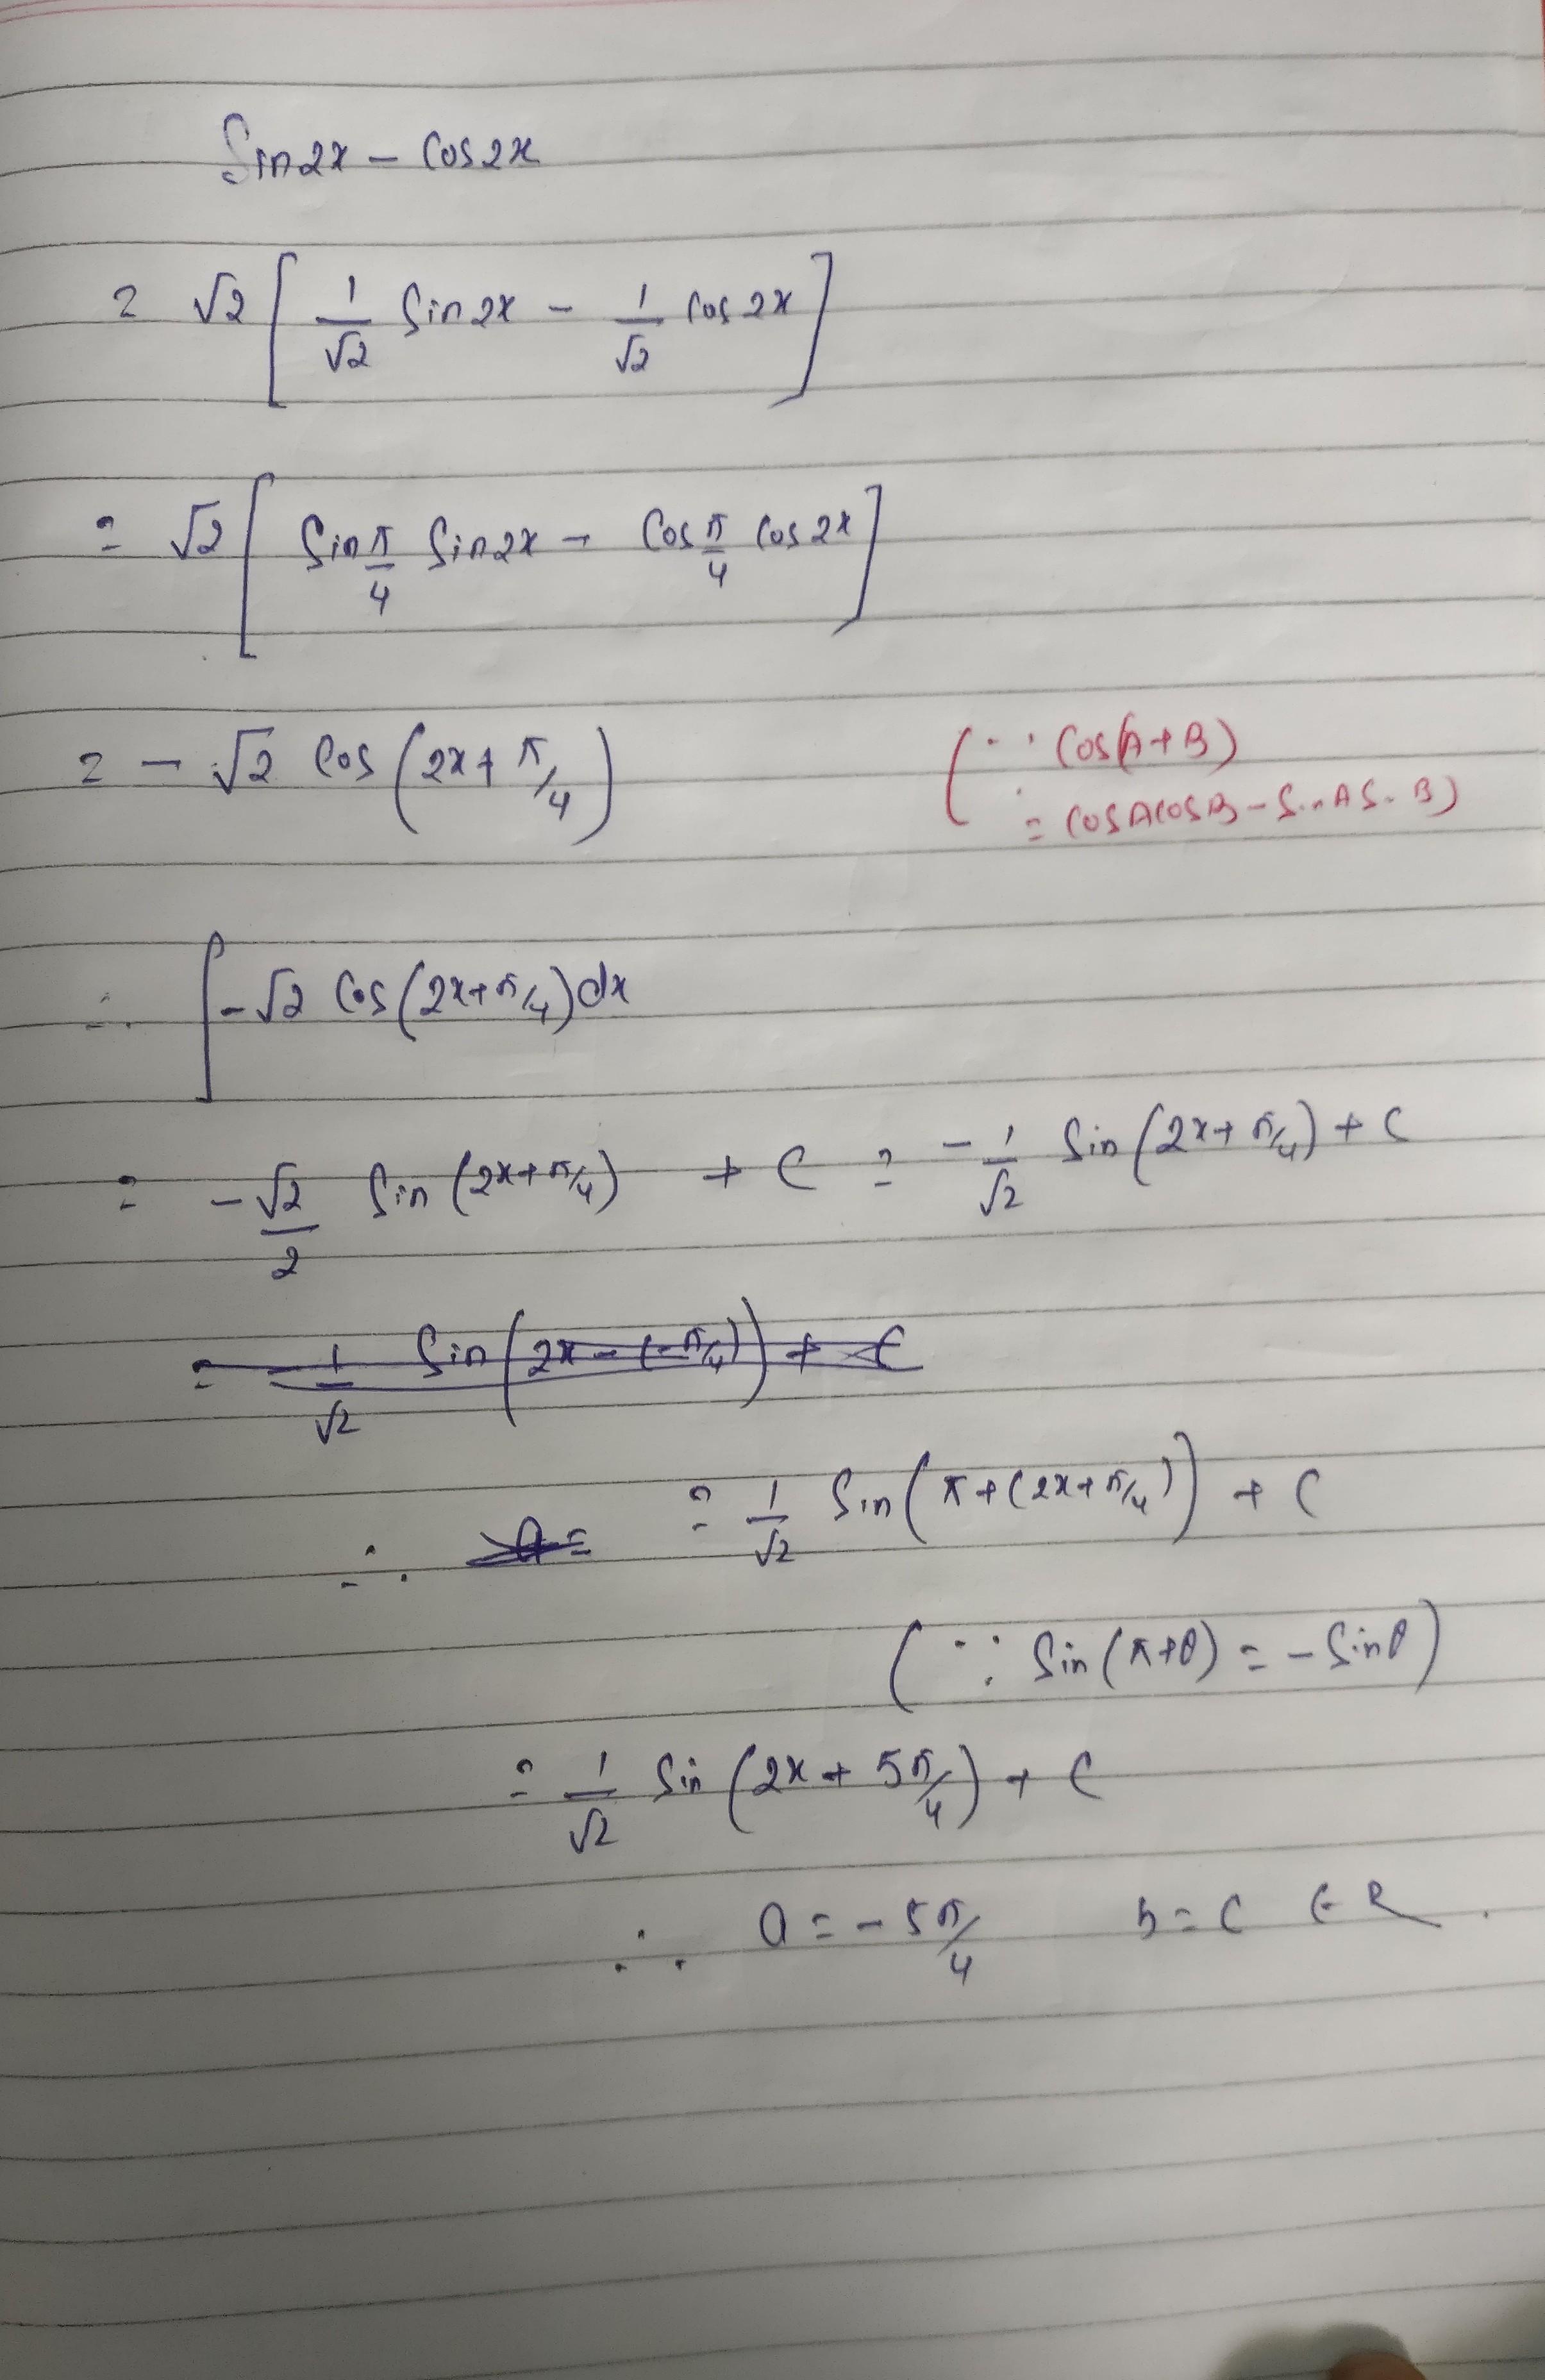 Sin2x - Cos2x
= √2 [ 1/√2 Sin2x - 1/√2 Cos2x ]
= √2 [ Sin π/4 Sin2x - Cos π/4 Cos2x ]
= - √2 Cos (2x + π/4) (∵ Cos(A+B)
= CosACosB - SinASinB)
∴ ∫ -√2 Cos(2x+π/4)dx
= -√2/2 Sin(2x+π/4) + C = -1/√2 Sin(2x+π/4) + C
= -1/√2 Sin(2x-(-π/4)) + C
∴ a= = 1/√2 Sin(π+(2x+π/4)) + C
(∵ Sin(π+θ) = -Sinθ)
= 1/√2 Sin(2x + 5π/4) + C
∴ a = -5π/4 b = C ∈ R.